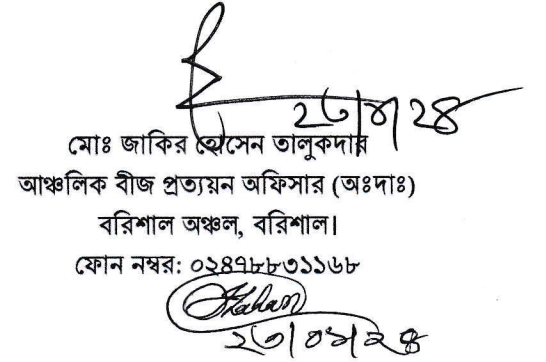 মোঃ জাকির হোসেন তালুকদার
আঞ্চলিক বীজ প্রত্যয়ন অফিসার (অঃদাঃ)
বরিশাল অঞ্চল, বরিশাল।
ফোন নম্বর: ০২৪৭৮৮৩১১৬৮